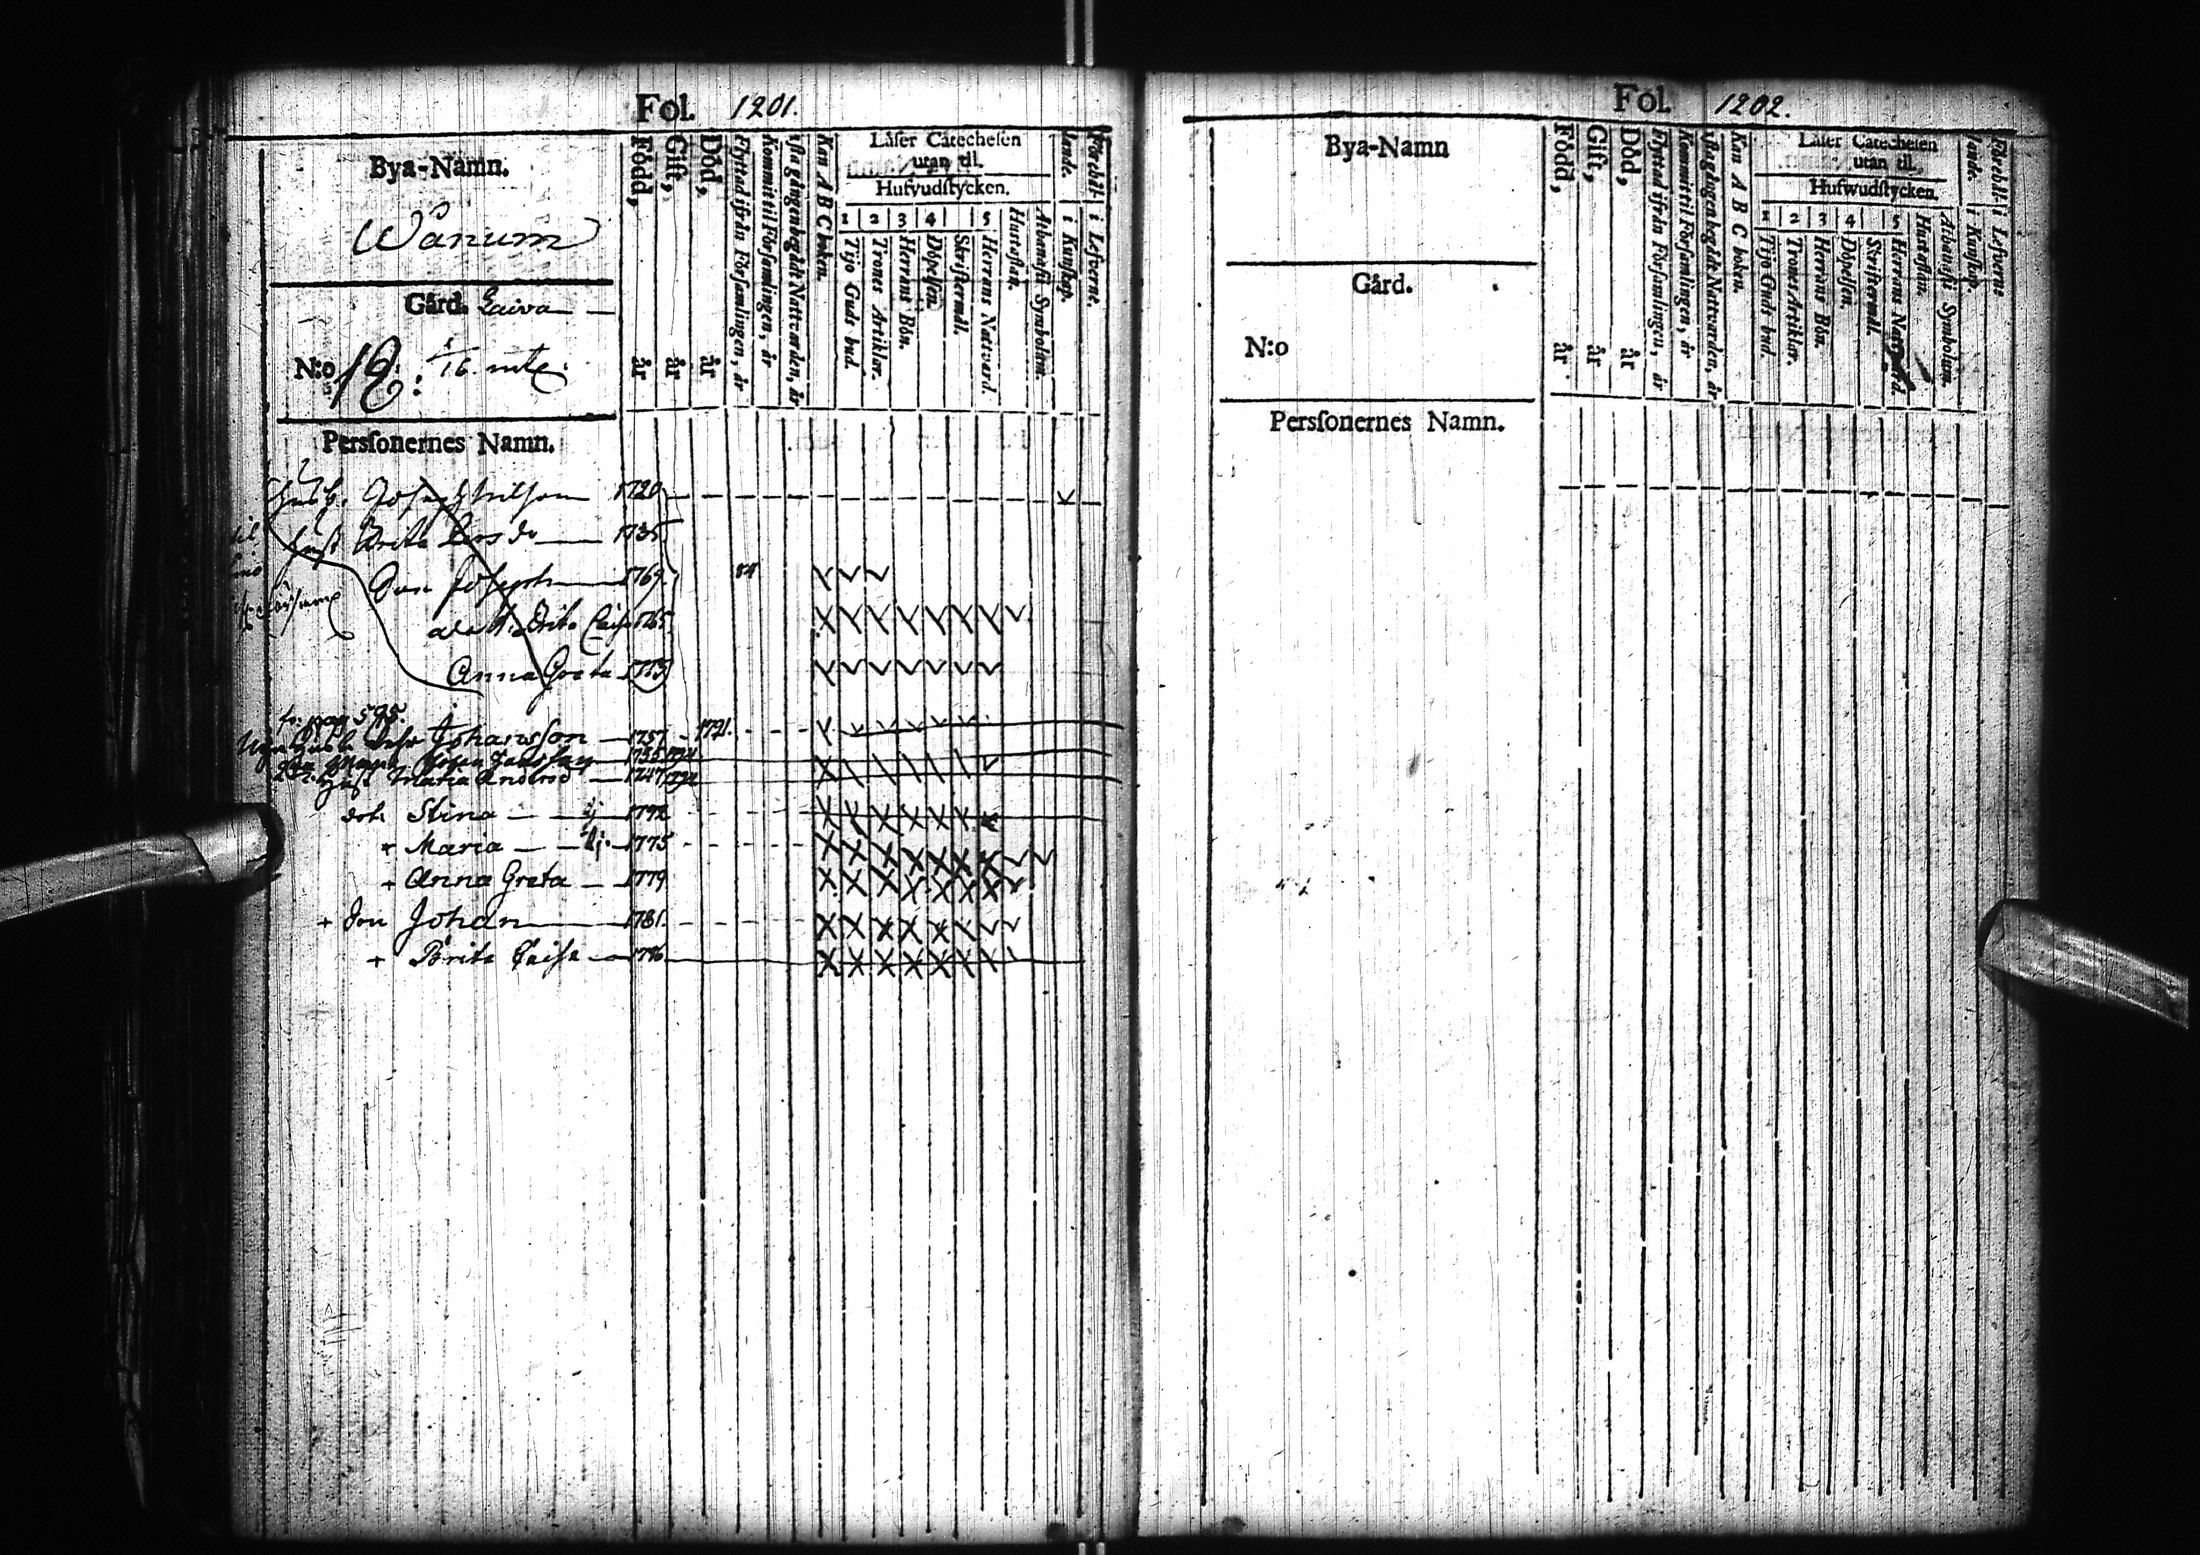 Fol. 1201.
Bya-Namn.
Wånum
Gård. Laiva
N:o 12: 1/16 mtl.
Född, år
Gift, år
Död, år
Flyttad ifrån Församlingen, år
Kommit til Församlingen, år
sista gången begådt Nattvarden, år
Kan A B C boken.
Läser Catechesen
utan til.
Hufvudstycken.
1 2 3 4 5
Tijo Guds bud.
Trones Artiklar.
Herrans Bön.
Döpelsen.
Skriftermål.
Herrans Nattvard.
Hustaflan.
Athanasii Symbolum.
Förehållande.
i Kunskap.
i Lefverne.
Personernes Namn.
1720
hust Brita Lars do 1735
Son Joseph 1769 84
Brita Caisa 1765
Anna Greta 1773
fr. pag 595.
Johansson 1757 1791.
1755
Hust Maria Anders d 1747
dott Stina 1792
+ Maria 1775
+ Anna Greta 1779
+ Son Johan 1781
+ Brita Caisa 1786
Fol 1202.
Bya-Namn
Gård.
N:o
Personernes Namn.
Född, år
Gift, år
Död, år
Flyttad ifrån Församlingen, år
Kommit til Församlingen, år
sista gången begådt Nattvarden, år
Kan A B C boken.
Läser Catechesen
utan til.
Hufwudstycken.
1 2 3 4 5
Tijo Guds bud.
Trones Artiklar.
Herrans Bön.
Döpelsen.
Skriftermål.
Herrans Nattvard.
Hustaflan.
Athanasii Symbolum.
Förehållande.
i Kunskap.
i Lefverne